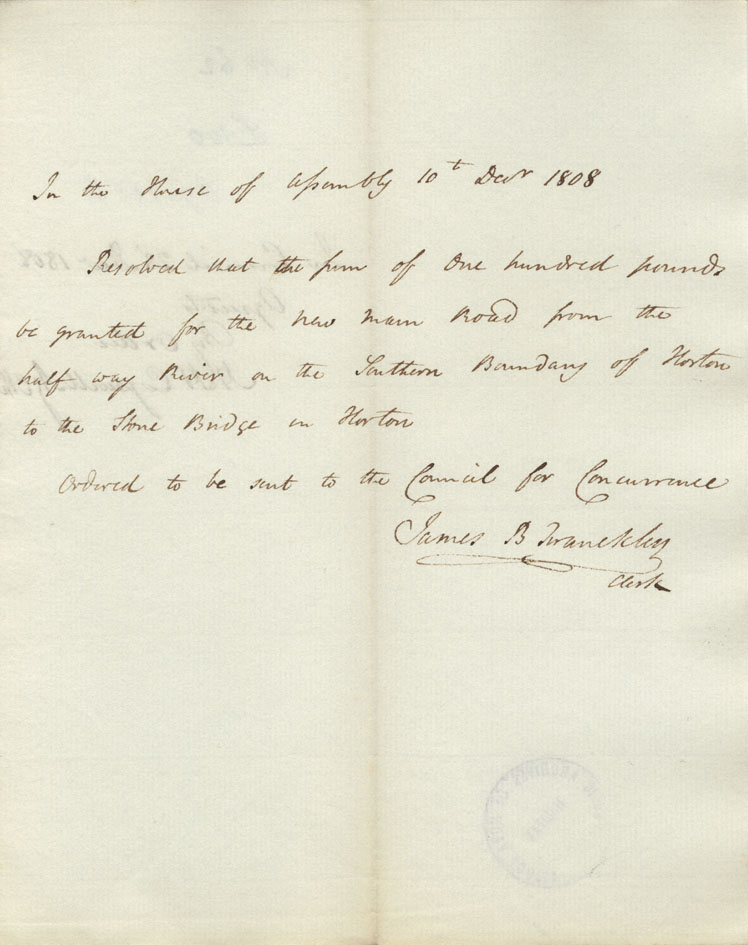 In the House of Assembly 10t Decr 1808
Resolved that the sum of One hundred pounds
be granted for the new main Road from the
half way River on the Southern Boundary of Horton
to the Stone Bridge in Horton
Ordered to be sent to the Council for Concurrence
James B Franckley
Clerk